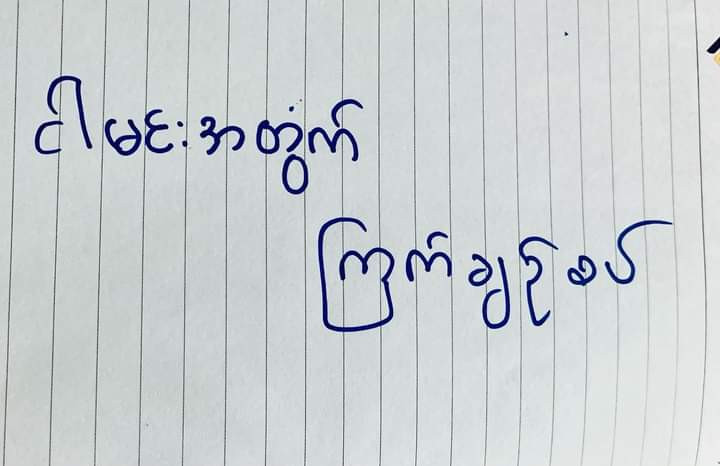 ငါမင်းအတွက်
ကြက်ချဉ်စပ်